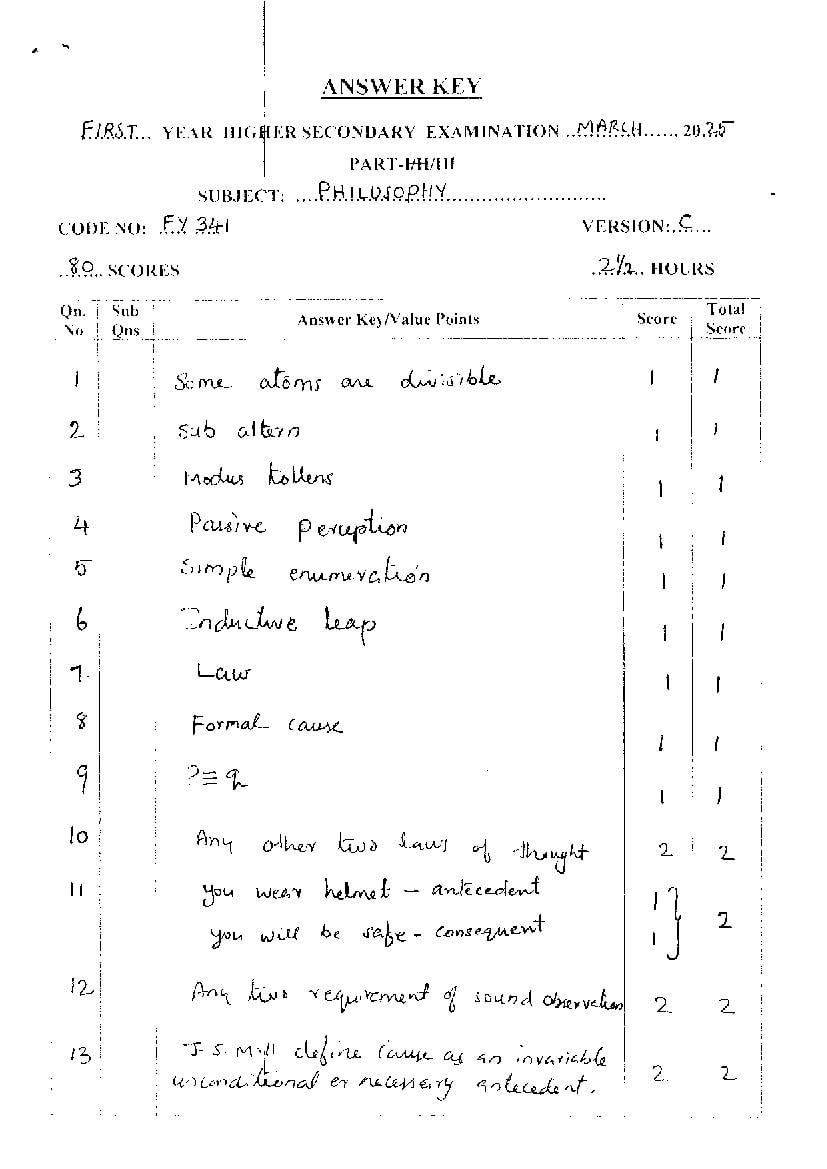 ANSWER KEY
FIRST... YEAR HIGHER SECONDARY EXAMINATION ..MARCH...... 2025
PART-I/II/III
SUBJECT: ....PHILOSOPHY..........................
CODE NO: .FY 341
VERSION:.C...
..80.. SCORES
.2½.. HOURS
Qn. No Sub Qns Answer Key/Value Points Score Total Score
1 Some atoms are divisible 1 1
2 Sub altern 1 1
3 Modus tollens 1 1
4 Passive perception 1 1
5 Simple enumeration 1 1
6 Inductive leap 1 1
7. Law 1 1
8 Formal cause 1 1
9 P≡q 1 1
10 Any other two laws of thought 2 2
11 you wear helmet - antecedent 1
you will be safe - consequent 1 } 2
12 Any two requirement of sound observation 2 2
13 J.S. Mill define cause as an invariable
unconditional or necessary antecedent. 2 2